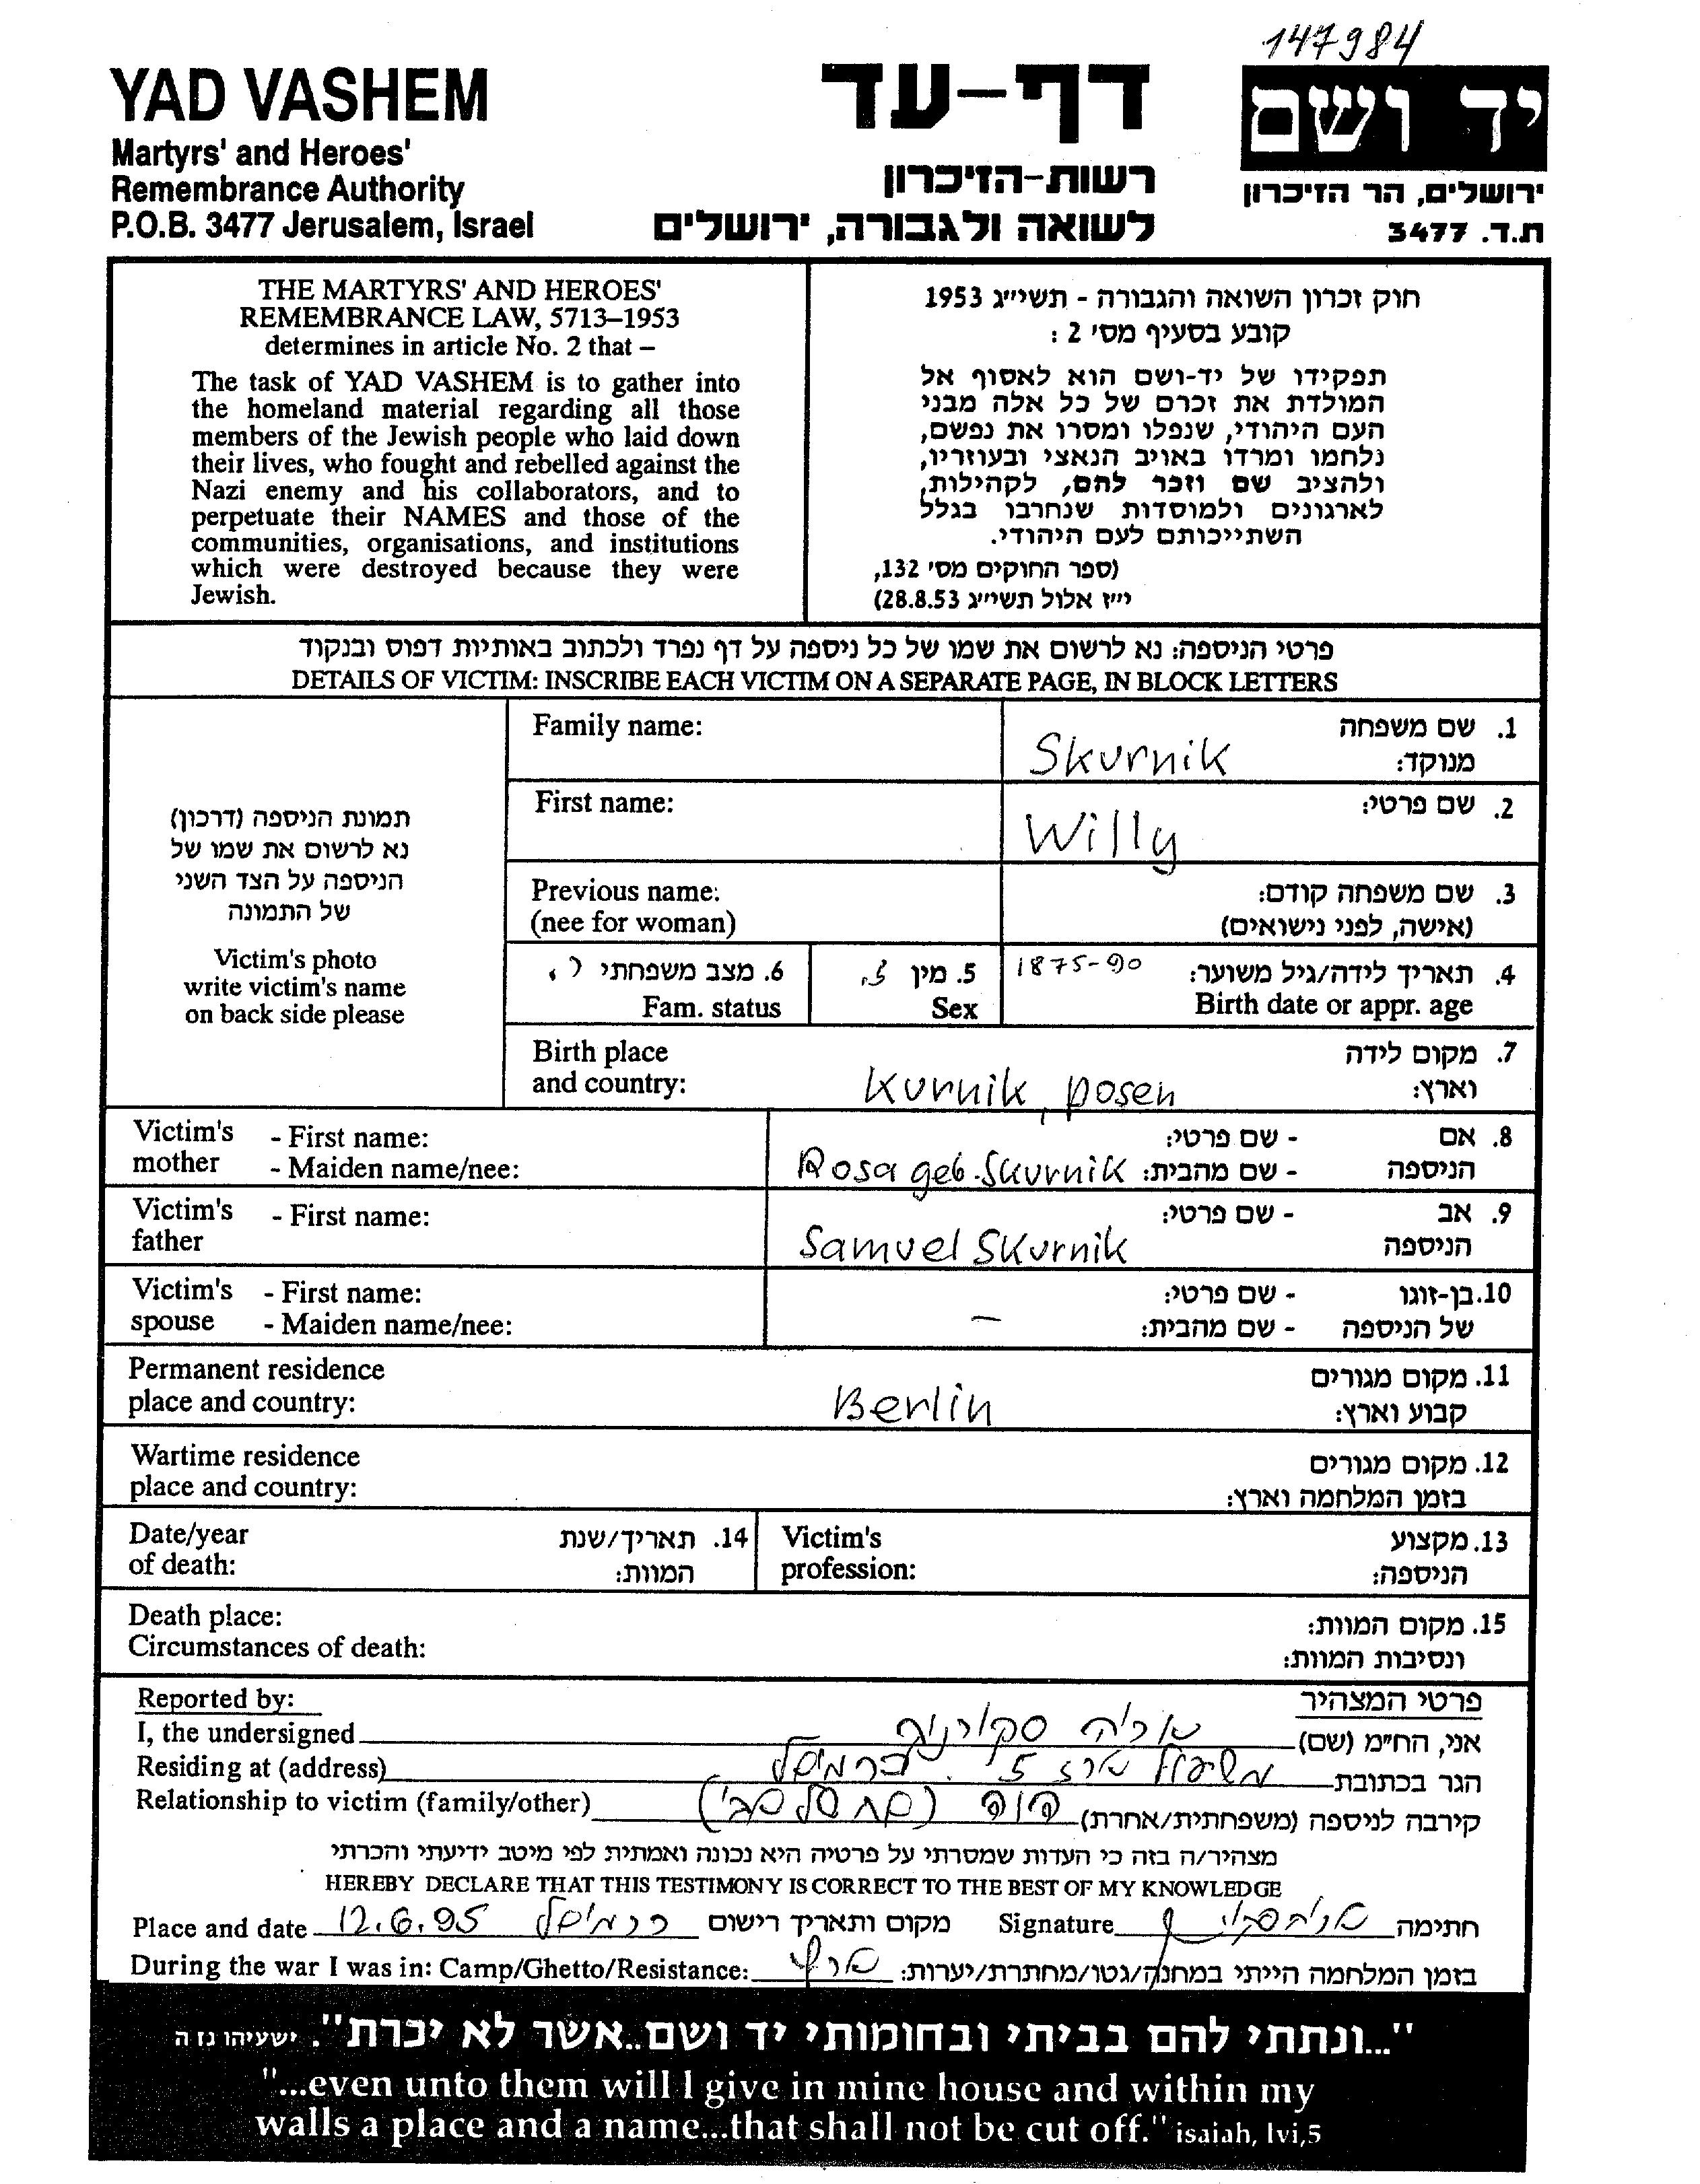 147984
YAD VASHEM
Martyrs' and Heroes'
Remembrance Authority
P.O.B. 3477 Jerusalem, Israel
דף-עד
רשות-הזיכרון
לשואה ולגבורה, ירושלים
יד ושם
ירושלים, הר הזיכרון
ת.ד. 3477
THE MARTYRS' AND HEROES'
REMEMBRANCE LAW, 5713–1953
determines in article No. 2 that –
The task of YAD VASHEM is to gather into
the homeland material regarding all those
members of the Jewish people who laid down
their lives, who fought and rebelled against the
Nazi enemy and his collaborators, and to
perpetuate their NAMES and those of the
communities, organisations, and institutions
which were destroyed because they were
Jewish.
חוק זכרון השואה והגבורה - תשי״ג 1953
קובע בסעיף מס׳ 2 :
תפקידו של יד-ושם הוא לאסוף אל
המולדת את זכרם של כל אלה מבני
העם היהודי, שנפלו ומסרו את נפשם,
נלחמו ומרדו באויב הנאצי ובעוזריו,
ולהציב שם וזכר להם, לקהילות,
לארגונים ולמוסדות שנחרבו בגלל
השתייכותם לעם היהודי.
(ספר החוקים מס׳ 132,
י״ז אלול תשי״ג 28.8.53)
פרטי הניספה: נא לרשום את שמו של כל ניספה על דף נפרד ולכתוב באותיות דפוס ובנקוד
DETAILS OF VICTIM: INSCRIBE EACH VICTIM ON A SEPARATE PAGE, IN BLOCK LETTERS
תמונת הניספה (דרכון)
נא לרשום את שמו של
הניספה על הצד השני
של התמונה
Victim's photo
write victim's name
on back side please
Family name: Skurnik 1. שם משפחה
מנוקד:
First name: Willy 2. שם פרטי:
Previous name: 3. שם משפחה קודם:
(nee for woman) (אישה, לפני נישואים)
6. מצב משפחתי ר. 5. מין ז. 1875-90 4. תאריך לידה/גיל משוער:
Fam. status Sex Birth date or appr. age
Birth place 7. מקום לידה
and country: Kurnik, posen וארץ:
Victim's - First name: - שם פרטי: 8. אם
mother - Maiden name/nee: Rosa geb. Skurnik - שם מהבית: הניספה
Victim's - First name: - שם פרטי: 9. אב
father Samuel Skurnik הניספה
Victim's - First name: - שם פרטי: 10. בן-זוגו
spouse - Maiden name/nee: — - שם מהבית: של הניספה
Permanent residence 11. מקום מגורים
place and country: Berlin קבוע וארץ:
Wartime residence 12. מקום מגורים
place and country: בזמן המלחמה וארץ:
Date/year 14. תאריך/שנת Victim's 13. מקצוע
of death: המוות: profession: הניספה:
Death place: 15. מקום המוות:
Circumstances of death: ונסיבות המוות:
Reported by: פרטי המצהיר
I, the undersigned אריה סקורניק אני, הח״מ (שם)
Residing at (address) משעול ארז 5 כרמיאל הגר בכתובת
Relationship to victim (family/other) דוד (אח של אבי) קירבה לניספה (משפחתית/אחרת)
מצהיר/ה בזה כי העדות שמסרתי על פרטיה היא נכונה ואמתית לפי מיטב ידיעתי והכרתי
HEREBY DECLARE THAT THIS TESTIMONY IS CORRECT TO THE BEST OF MY KNOWLEDGE
Place and date 12.6.95 כרמיאל מקום ותאריך רישום Signature חתימה
During the war I was in: Camp/Ghetto/Resistance: ארץ בזמן המלחמה הייתי במחנה/גטו/מחתרת/יערות:
"...ונתתי להם בביתי ובחומותי יד ושם..אשר לא יכרת". ישעיהו נו ה
"...even unto them will I give in mine house and within my
walls a place and a name...that shall not be cut off." isaiah, lvi,5